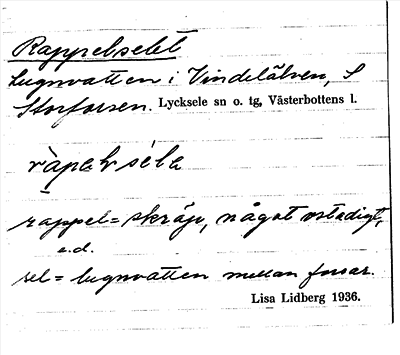 Rappelselet
Lugnvatten i Vindelälven, S
Storforsen. Lycksele sn o. tg, Västerbottens l.
ràpəl sélə
rappel = skräp, något ostadigt,
e.d.
sel = lugnvatten mellan forsar.
Lisa Lidberg 1936.